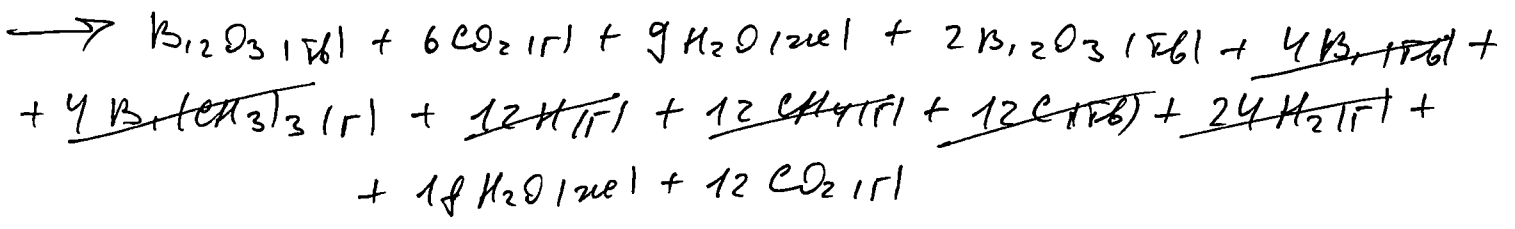 → Bi2O3(тв) + 6CO2(г) + 9H2O(ж) + 2Bi2O3(тв) + 4Bi(тв) +
+ 4Bi(CH3)3(г) + 12H(г) + 12CH4(г) + 12C(тв) + 24H2(г) +
+ 18H2O(ж) + 12CO2(г)